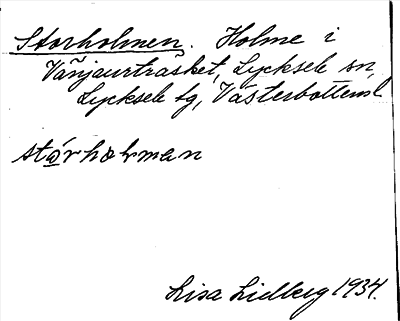 Storholmen. Holme i
Vänjaurträsket, Lycksele sn,
Lycksele tg, Västerbottens l
stórholman
Lisa Lidberg 1934.